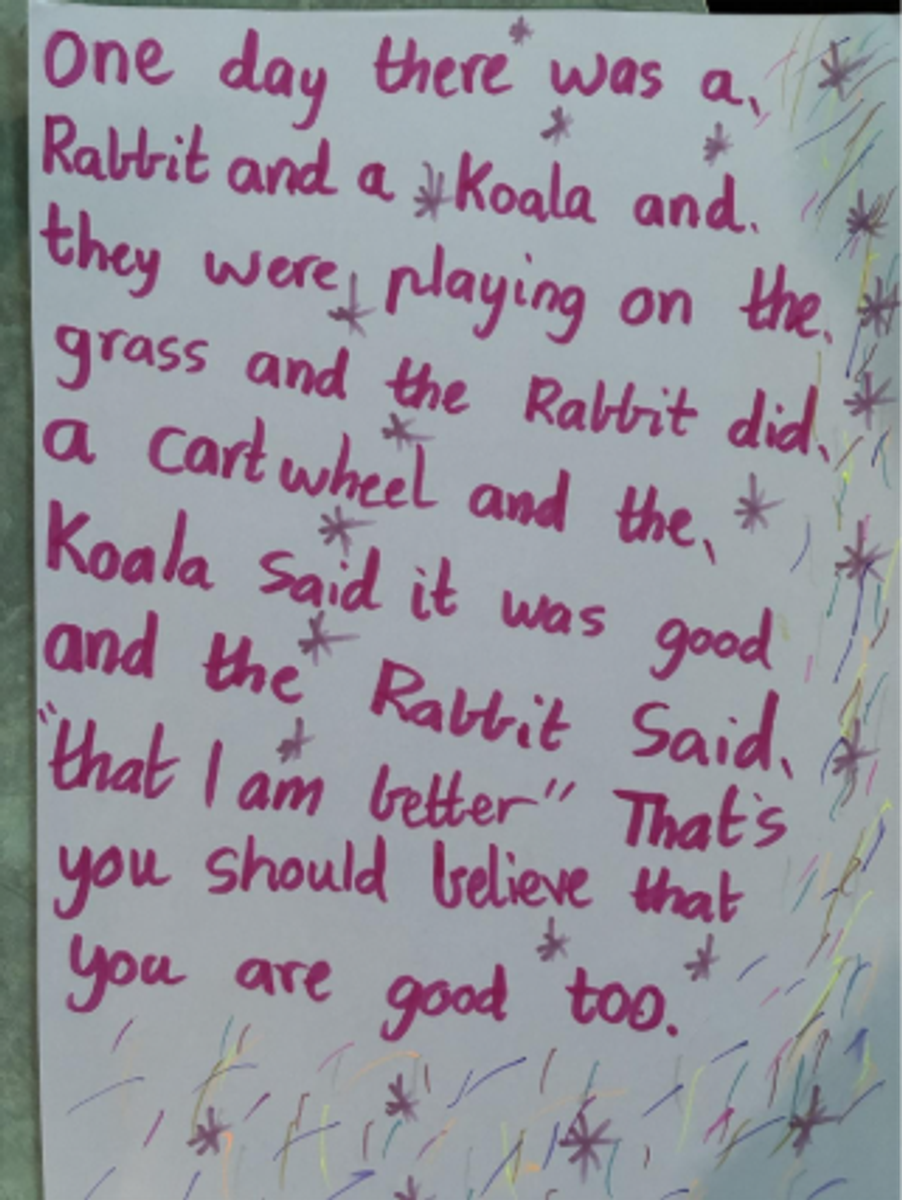 One day there was a,
Rabbit and a Koala and.
they were, playing on the.
grass and the Rabbit did,
a cartwheel and the,
Koala Said it was good
and the Rabbit Said,
"that I am better" That's
you should believe that
you are good too.